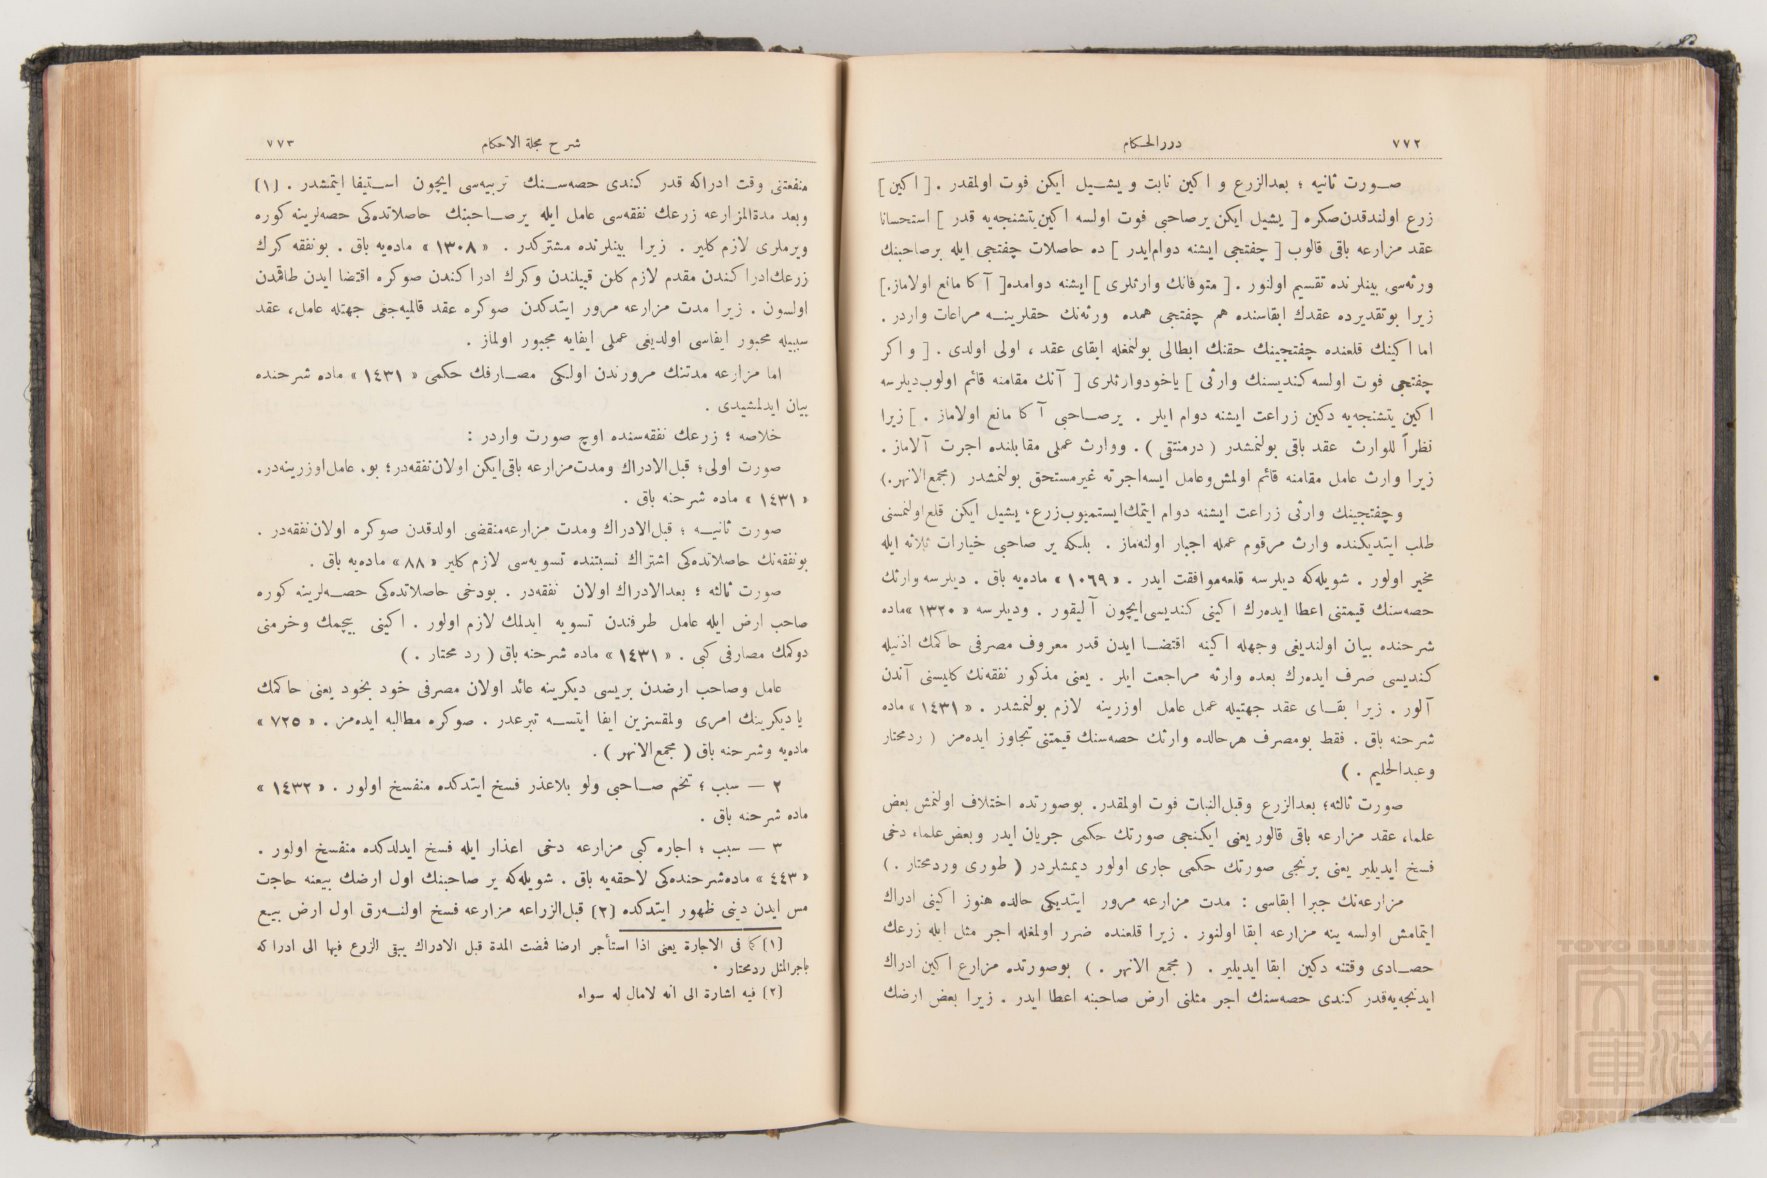 ٧٧٢
دررالحكام
صورت ثانيه ؛ بعدالزرع و اكين نابت و يشيل ايكن فوت اولمقدر . [ اكين ]
زرع اولندقدن صكره [ يشيل ايكن يرصاحبى فوت اولسه اكين يتشنجه‌يه قدر ] استحسانا
عقد مزارعه باقى قالوب [ چفتجى ايشنه دوام ايدر ] ده حاصلات چفتجى ايله يرصاحبنك
ورثه‌سى بينلرنده تقسيم اولنور . [ متوفانك وارثلرى ] ايشنه دوامده [ آ كا مانع اولاماز. ]
زيرا بوتقديرده عقدك ابقاسنده هم چفتجى همده ورثه‌نك حقلرينه مراعات واردر .
اما اكينك قلعنده چفتجينك حقنك ابطالى بولنمغله ابقاى عقد ، اولى اولدى . [ و اكر
چفتجى فوت اولسه كنديسنك وارثى ] ياخود وارثلرى [ آنك مقامنه قائم اولوب ديلرسه
اكين يتشنجه‌يه دكين زراعت ايشنه دوام ايلر . يرصاحبى آ كا مانع اولاماز . ] زيرا
نظراً للوارث عقد باقى بولنمشدر ( درمنتقى ) . ووارث عملى مقابلنده اجرت آلاماز .
زيرا وارث عامل مقامنه قائم اولمش وعامل ايسه اجرته غيرمستحق بولنمشدر (مجمع الانهر.)
وچفتجينك وارثى زراعت ايشنه دوام ايتمك ايستميوب زرع، يشيل ايكن قلع اولنمسنى
طلب ايتديكنده وارث مرقوم عمله اجبار اولنه‌ماز . بلكه ير صاحبى خيارات ثلاثه ايله
مخير اولور . شويله‌كه ديلرسه قلعه موافقت ايدر . « ١٠٦٩ » ماده‌يه باق . ديلرسه وارثك
حصه‌سنك قيمتنى اعطا ايده‌رك اكينى كنديسى ايچون آليقور . وديلرسه « ١٣٢٠ »ماده
شرحنده بيان اولنديغى وجهله اكينه اقتضا ايدن قدر معروف مصرفى حاكمك اذنيله
كنديسى صرف ايده‌رك بعده وارثه مراجعت ايلر . يعنى مذكور نفقه‌نك كليسنى آندن
آلور . زيرا بقاى عقد جهتيله عمل عامل اوزرينه لازم بولنمشدر . « ١٤٣١ » ماده
شرحنه باق . فقط بومصرف هرحالده وارثك حصه‌سنك قيمتنى تجاوز ايده‌مز ( ردمحتار
وعبدالحليم . )
صورت ثالثه؛ بعدالزرع وقبل النبات فوت اولمقدر. بوصورتده اختلاف اولنمش بعض
علماء عقد مزارعه باقى قالور يعنى ايكنجى صورتك حكمى جريان ايدر وبعض علماء دخى
فسخ ايديلير يعنى برنجى صورتك حكمى جارى اولور ديمشلردر ( طورى وردمحتار . )
مزارعه‌نك جبرا ابقاسى : مدت مزارعه مرور ايتديكى حالده هنوز اكينى ادراك
ايتمامش اولسه ينه مزارعه ابقا اولنور . زيرا قلعنده ضرر اولمغله اجر مثل ايله زرعك
حصادى وقتنه دكين ابقا ايديلير . ( مجمع الانهر . ) بوصورتده مزارع اكين ادراك
ايدنجه‌يه قدر كندى حصه‌سنك اجر مثلنى ارض صاحبنه اعطا ايدر . زيرا بعض ارضك
شرح مجلة الاحكام
٧٧٣
منفعتنى وقت ادراكه قدر كندى حصه‌سنك تربيه‌سى ايچون استيفا ايتمشدر . (١)
وبعد مدة المزارعه زرعك نفقه‌سى عامل ايله يرصاحبنك حاصلاتده‌كى حصه‌لرينه كوره
ويرملرى لازم كلير . زيرا بينلرنده مشتركدر . « ١٣٠٨ » ماده‌يه باق . بونفقه كرك
زرعك ادراكندن مقدم لازم كلن قبيلندن وكرك ادراكندن صوكره اقتضا ايدن طاقمدن
اولسون . زيرا مدت مزارعه مرور ايتدكدن صوكره عقد قالميه‌جغى جهتله عامل، عقد
سببيله مجبور ايفاسى اولديغى عملى ايفايه مجبور اولماز .
اما مزارعه مدتنك مرورندن اولكى مصارفك حكمى « ١٤٣١ » ماده شرحنده
بيان ايدلمشيدى .
خلاصه ؛ زرعك نفقه‌سنده اوچ صورت واردر :
صورت اولى؛ قبل الادراك ومدت مزارعه باقى ايكن اولان نفقه‌در؛ بو، عامل اوزرينه‌در.
« ١٤٣١ » ماده شرحنه باق .
صورت ثانيه ؛ قبل الادراك ومدت مزارعه منقضى اولدقدن صوكره اولان نفقه‌در .
بونفقه‌نك حاصلاتده‌كى اشتراك نسبتنده تسويه‌سى لازم كلير « ٨٨ » ماده‌يه باق .
صورت ثالثه ؛ بعدالادراك اولان نفقه‌در . بودخى حاصلاتده‌كى حصه‌لرينه كوره
صاحب ارض ايله عامل طرفندن تسويه ايدلمك لازم اولور . اكينى بيچمك وخرمنى
دوكمك مصارفى كبى . « ١٤٣١ » ماده شرحنه باق ( رد محتار . )
عامل وصاحب ارضدن بريسى ديكرينه عائد اولان مصرفى خود بخود يعنى حاكمك
ياديكرينك امرى ولمقسزين ايفا ايتسه تبرعدر . صوكره مطالبه ايده‌مز . « ٧٢٥ »
ماده‌يه وشرحنه باق ( مجمع الانهر ) .
٢ — سبب ؛ تخم صاحبى ولو بلاعذر فسخ ايتدكده منفسخ اولور . « ١٤٣٢ »
ماده شرحنه باق .
٣ — سبب ؛ اجاره كبى مزارعه دخى اعذار ايله فسخ ايدلدكده منفسخ اولور .
« ٤٤٣ » ماده شرحنده‌كى لاحقه‌يه باق . شويله‌كه ير صاحبنك اول ارضك بيعنه حاجت
مس ايدن دينى ظهور ايتدكده (٢) قبل الزراعه مزارعه فسخ اولنه‌رق اول ارض بيع
(١) كما فى الاجارة يعنى اذا استأجر ارضا فمضت المدة قبل الادراك يبقى الزرع فيها الى ادراكه
باجر المثل ردمحتار .
(٢) فيه اشارة الى انه لامال له سواه
TOYO BUNKO